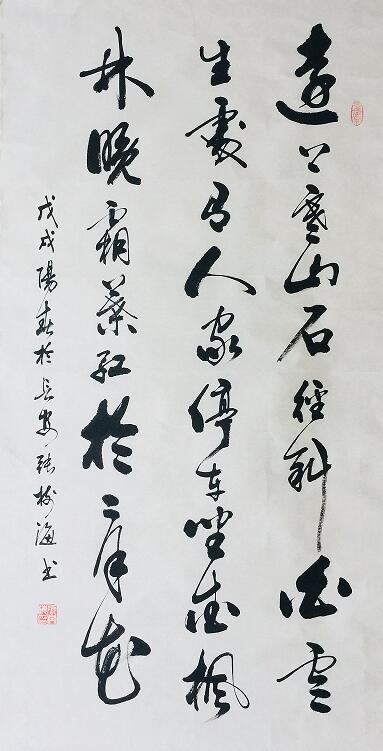 遠上寒山石徑斜白雲
生處有人家停車坐愛楓
林晚霜葉紅於二月花
戊戌陽春於長安張樹海书